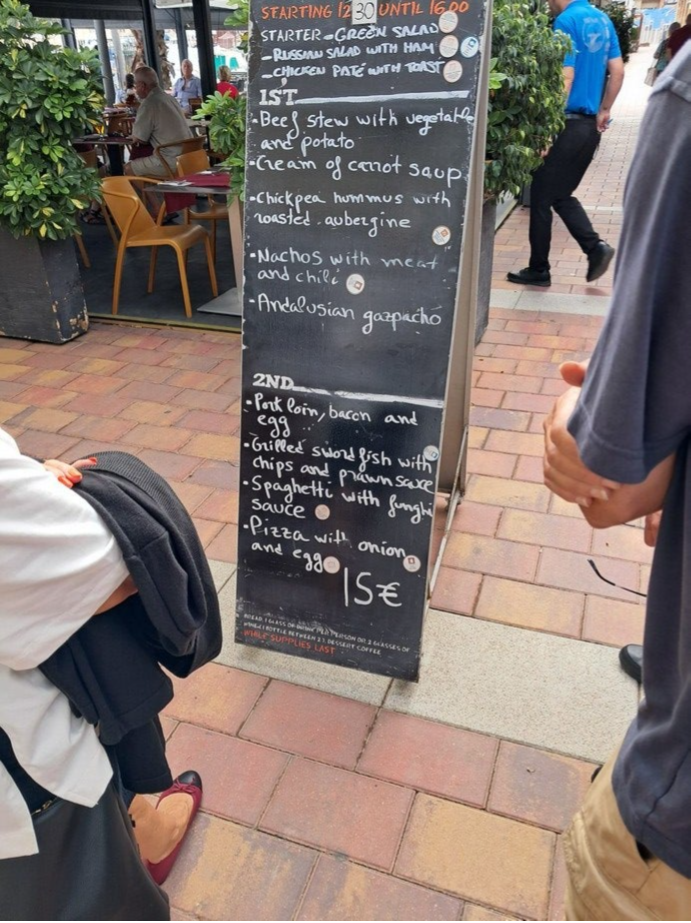 STARTING 12 30 UNTIL 16.00
STARTER - GREEN SALAD
- RUSSIAN SALAD WITH HAM
- CHICKEN PATÉ WITH TOAST
1S'T
• Beef stew with vegetable
and potato
• Cream of carrot soup
• Chickpea hummus with
roasted aubergine
• Nachos with meat
and chili
• Andalusian gazpacho
2ND
• Pork loin, bacon and
egg
• Grilled swordfish with
chips and prawn sauce
• Spaghetti with funghi
sauce
• Pizza with onion
and egg
15€
BREAD, 1 GLASS OF DRINK PER PERSON OR 2 GLASSES OF
BOTTLE BETWEEN 2 DESSERT COFFEE
WHILE SUPPLIES LAST